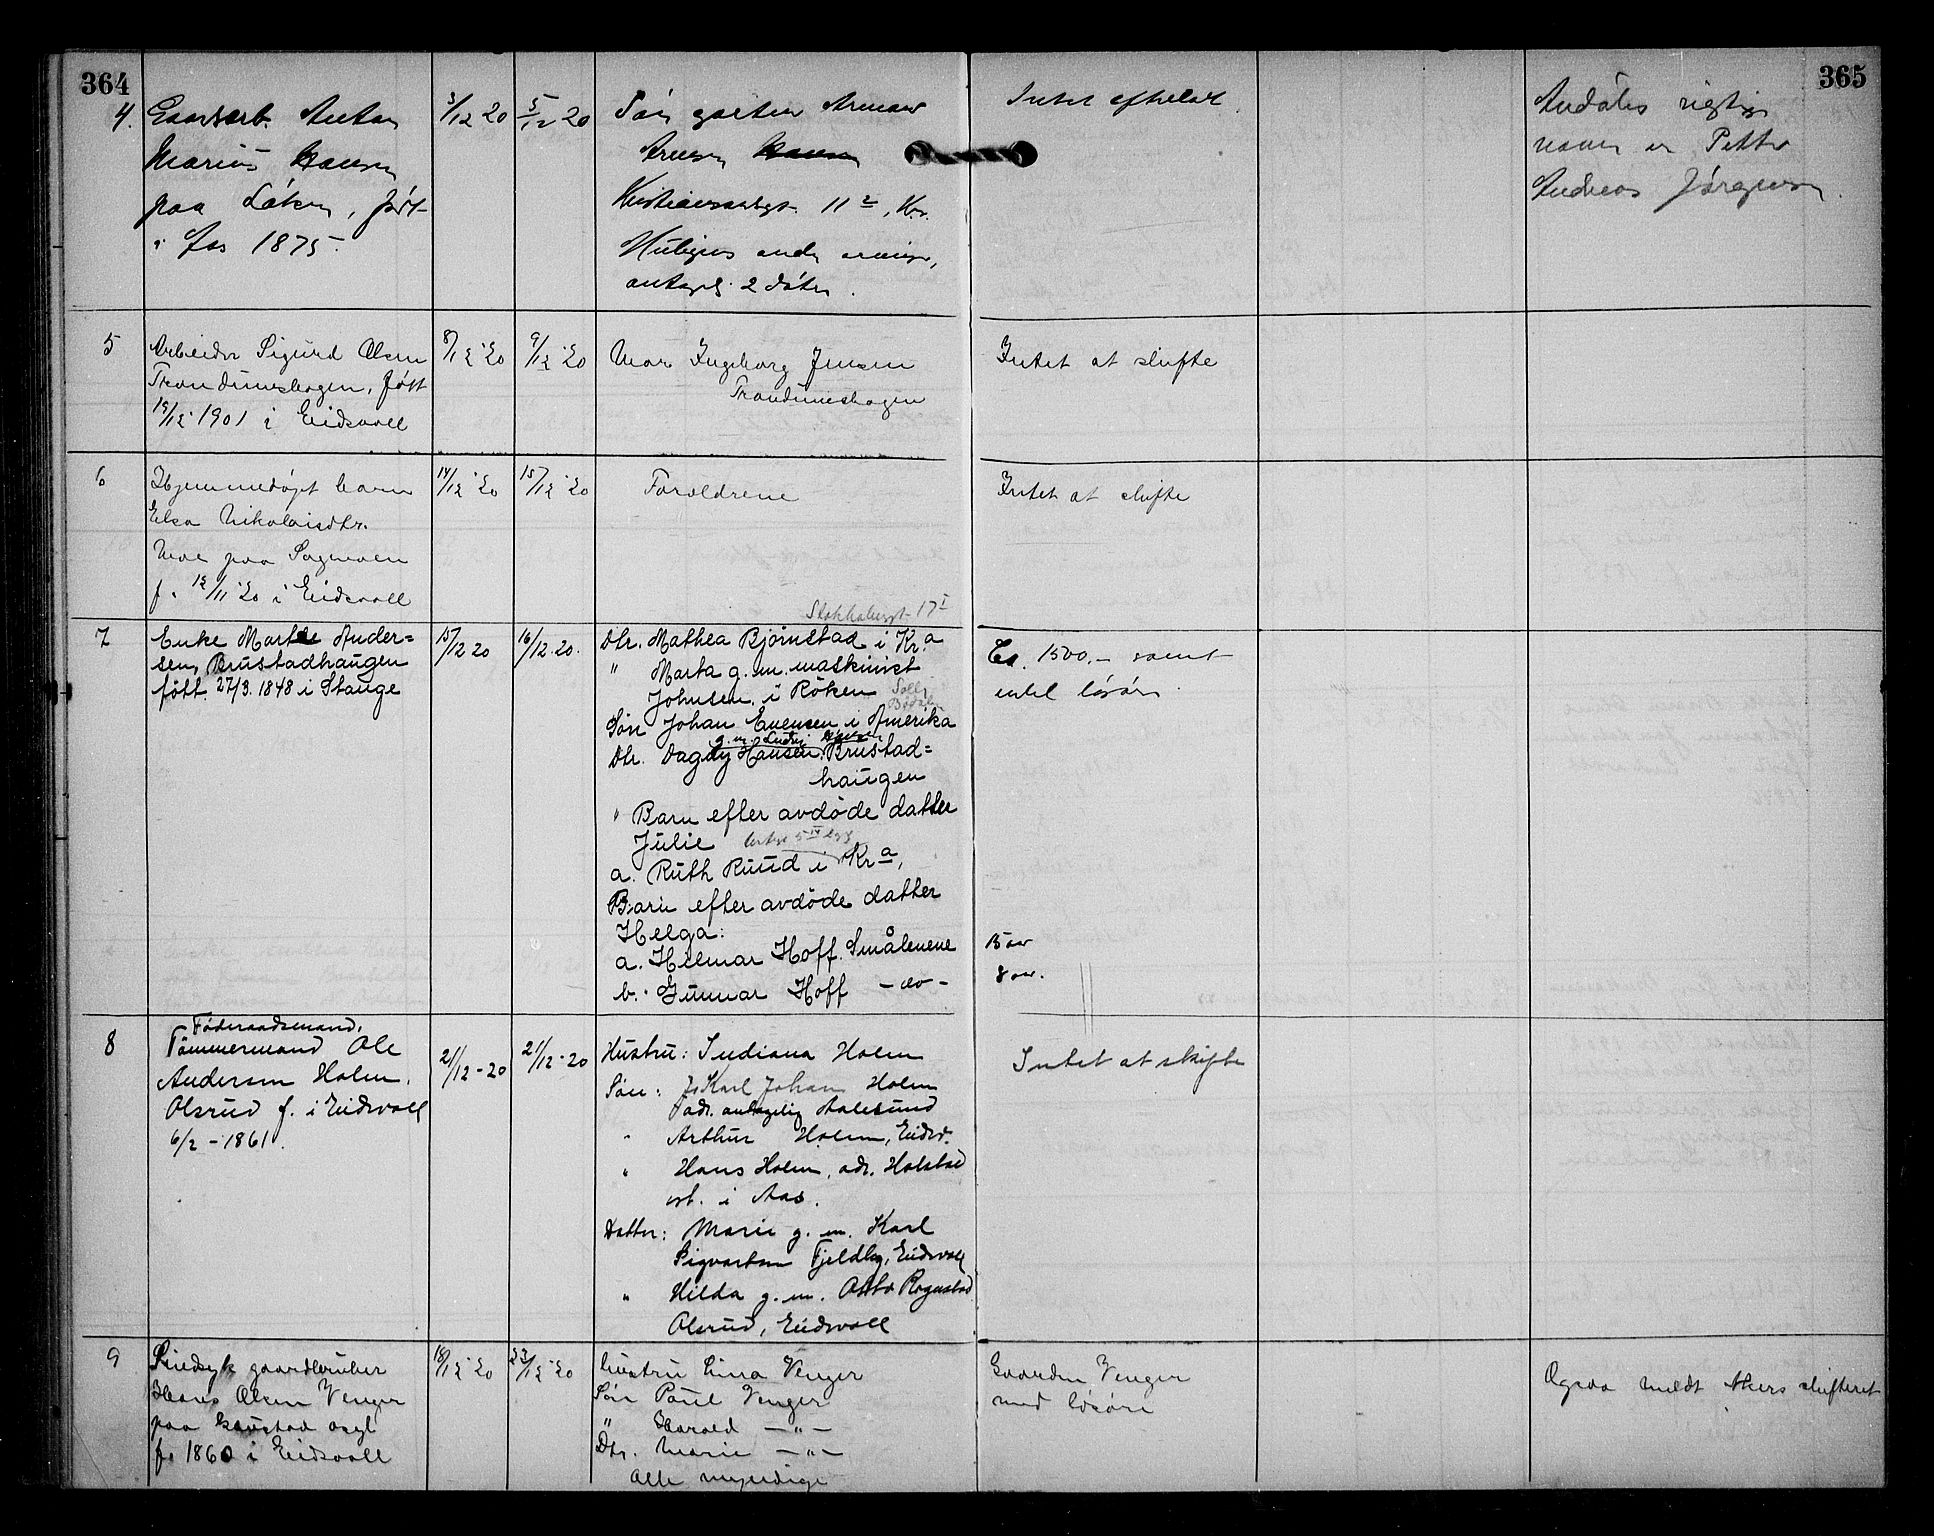 364
365
4.
Gaardsarb. Anton
Marius Hansen
paa Løken, født
i Aas 1875.
3/12 20
5/12 20
Søn gartner Armand
Hansen
Kristiansandsgt. 11 2, Kr.
Muligens andre arvinger,
antagel. 2 døtre.
Intet efterlat
Avdødes rigtige
navn er Petter
Andreas Jørgensen.
5
Arbeider Sigurd Olsen
Trandumskogen, født
19/12 1901 i Eidsvoll
8/12 20
9/12 20
Mor Ingeborg Jensen
Trandumskogen
Intet at skifte
6
Hjemmedøpt barn
Elsa Nikolaisdtr.
Moe paa Sagmoen
f. 12/11 20 i Eidsvoll
14/12 20
15/12 20
Forældrene
Intet at skifte
7
Enke Marthe Ander=
sen, Brustadhaugen
født 27/3. 1848 i Stange
15/12 20
16/12. 20.
Stokholmsgt 17 I
Dtr. Mathea Bjørnstad i Kr.a
" Marta g. m. maskinist
Johnsen, i Røken
Søn Johan Evensen i Amerika
g. m. Ludvig Hansen
Dtr. Dagny Hansen, Brustad=
haugen
" Barn efter avdøde datter
Julie
a. Ruth Ruud i Kra,
Barn efter avdøde datter
Helga:
a. Hilmar Hoff. Smålenene
b. Gunnar Hoff – do –
Ca. 1500.– samt
endel løsøre.
15 aar
8 aar.
8
Føderaadsmand,
Tømmermand Ole
Andersen Holm,
Olsrud f. i Eidsvoll
6/2 – 1861.
21/12 – 20
21/12 – 20
Hustru: Indiana Holm
Søn: Karl Johan Holm
adr. antagelig Aalesund
" Arthur Holm, Eidsv.
" Hans Holm, adr. Holstad
st. i Aas.
Datter: Marie g. m. Karl
Sigvartsen Fjeldhg, Eidsvoll
" Hilda g. m. Otto Rognstad
Olsrud, Eidsvoll
Intet at skifte
9
Sindsyk gaardbruker
Hans Olsen Venger
paa asyl
f. 1860 i Eidsvoll
18/12 20
23/12 20
Hustru Lina Venger
Søn Paul Venger
" Harald – " –
Dtr. Marie – " –
Alle myndige
Gaarden Venger
med løsøre
Ogsaa meldt Akers skifteret